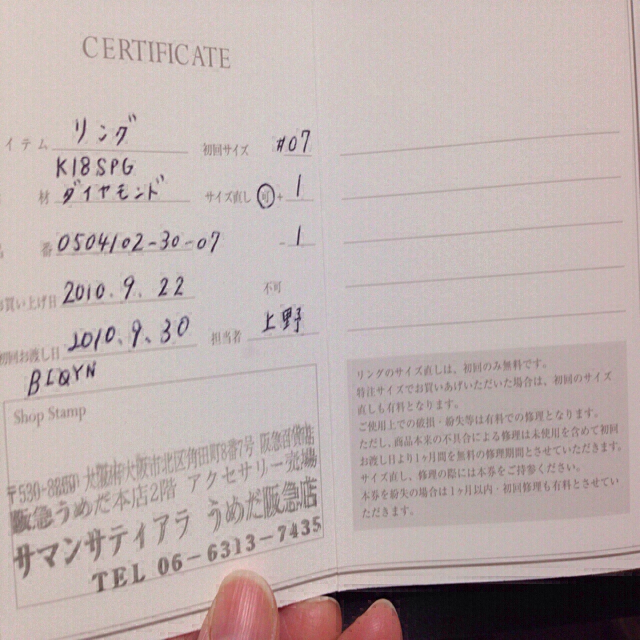 CERTIFICATE
イテム リング 初回サイズ #07
K18SPG
材 ダイヤモンド サイズ直し 可 + 1
番 0504102-30-07 - 1
お買い上げ日 2010.9.22 不可
初回お渡し日 2010.9.30 担当者 上野
BLQYN
Shop Stamp
〒530-8350 大阪府大阪市北区角田町8番7号 阪急百貨店
阪急うめだ本店2階 アクセサリー売場
サマンサティアラ うめだ阪急店
TEL 06-6313-7435
リングのサイズ直しは、初回のみ無料です。
特注サイズでお買いあげいただいた場合は、初回のサイズ
直しも有料となります。
ご使用上での破損・紛失等は有料での修理となります。
ただし、商品本来の不具合による修理は未使用を含めて初回
お渡し日より1ヶ月間を無料の修理期間とさせていただきます。
サイズ直し、修理の際には本券をご持参ください。
本券を紛失の場合は1ヶ月以内・初回修理も有料とさせてい
ただきます。